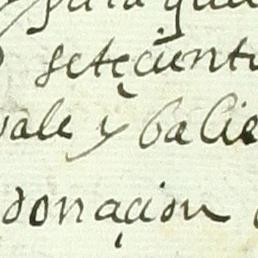 para que
seteçientu
vale y balie
donaçion